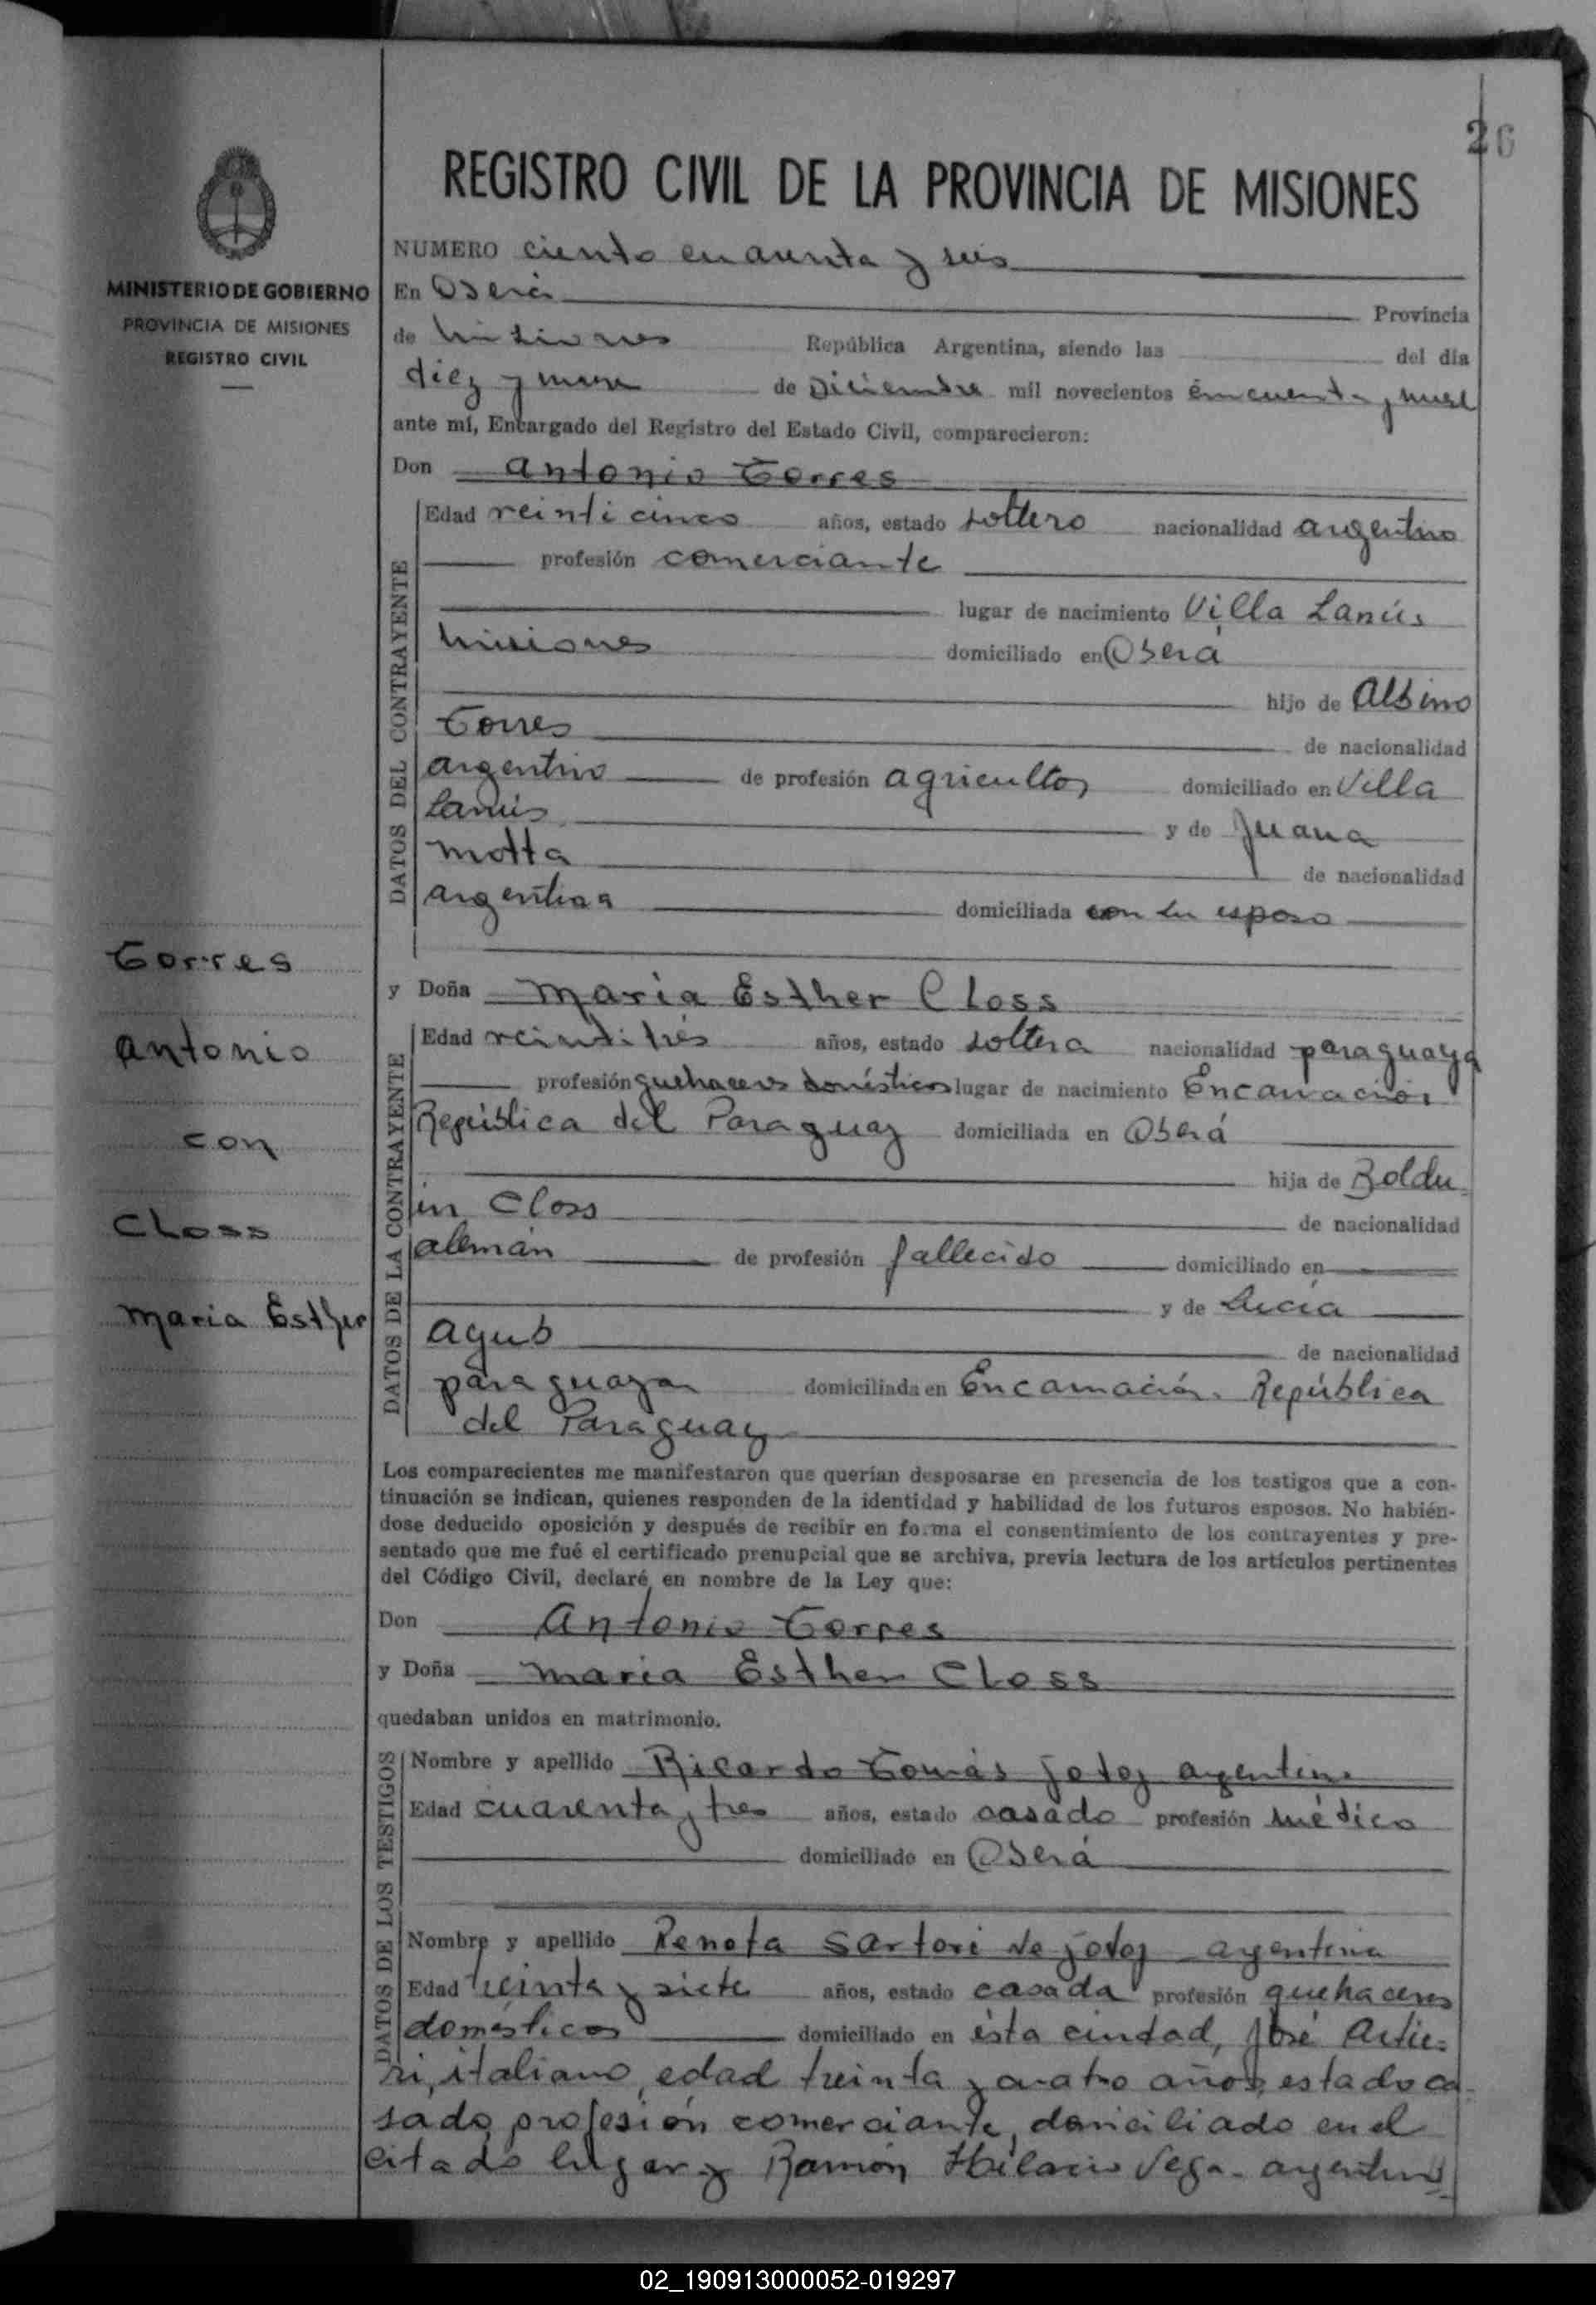 26
REGISTRO CIVIL DE LA PROVINCIA DE MISIONES
MINISTERIO DE GOBIERNO
PROVINCIA DE MISIONES
REGISTRO CIVIL
NUMERO ciento cuarenta y seis
En Oberá Provincia
de Misiones República Argentina, siendo las del día
diez y nueve de Diciembre mil novecientos cincuenta y nueve
ante mí, Encargado del Registro del Estado Civil, comparecieron:
Don Antonio Torres
DATOS DEL CONTRAYENTE
Edad veinticinco años, estado soltero nacionalidad argentino
profesión comerciante
lugar de nacimiento Villa Lanús
Misiones domiciliado en Oberá
hijo de Albino
Torres de nacionalidad
argentino de profesión agricultor domiciliado en Villa
Lanús y de Juana
Motta de nacionalidad
argentina domiciliada con su esposo
Torres
Antonio
con
Closs
Maria Esther
y Doña Maria Esther Closs
DATOS DE LA CONTRAYENTE
Edad veintitrés años, estado soltera nacionalidad paraguaya
profesión quehaceres domésticos lugar de nacimiento Encarnación
República del Paraguay domiciliada en Oberá
hija de Boldu-
in Closs de nacionalidad
alemán de profesión fallecido domiciliado en
y de Lucía
Ayub de nacionalidad
paraguaya domiciliada en Encarnación. República
del Paraguay
Los comparecientes me manifestaron que querían desposarse en presencia de los testigos que a con-
tinuación se indican, quienes responden de la identidad y habilidad de los futuros esposos. No habién-
dose deducido oposición y después de recibir en forma el consentimiento de los contrayentes y pre-
sentado que me fué el certificado prenupcial que se archiva, previa lectura de los artículos pertinentes
del Código Civil, declaré en nombre de la Ley que:
Don Antonio Torres
y Doña Maria Esther Closs
quedaban unidos en matrimonio.
DATOS DE LOS TESTIGOS
Nombre y apellido Ricardo Tomás argentino
Edad cuarenta y tres años, estado casado profesión médico
domiciliado en Oberá
Nombre y apellido Renata Sartori de argentina
Edad treinta y siete años, estado casada profesión quehaceres
domésticos domiciliado en ésta ciudad, José
italiano, edad treinta y cuatro años, estado ca-
sado, profesión comerciante, domiciliado en el
citado lugar y Ramón Hilario Vega. argentino
02_190913000052-019297